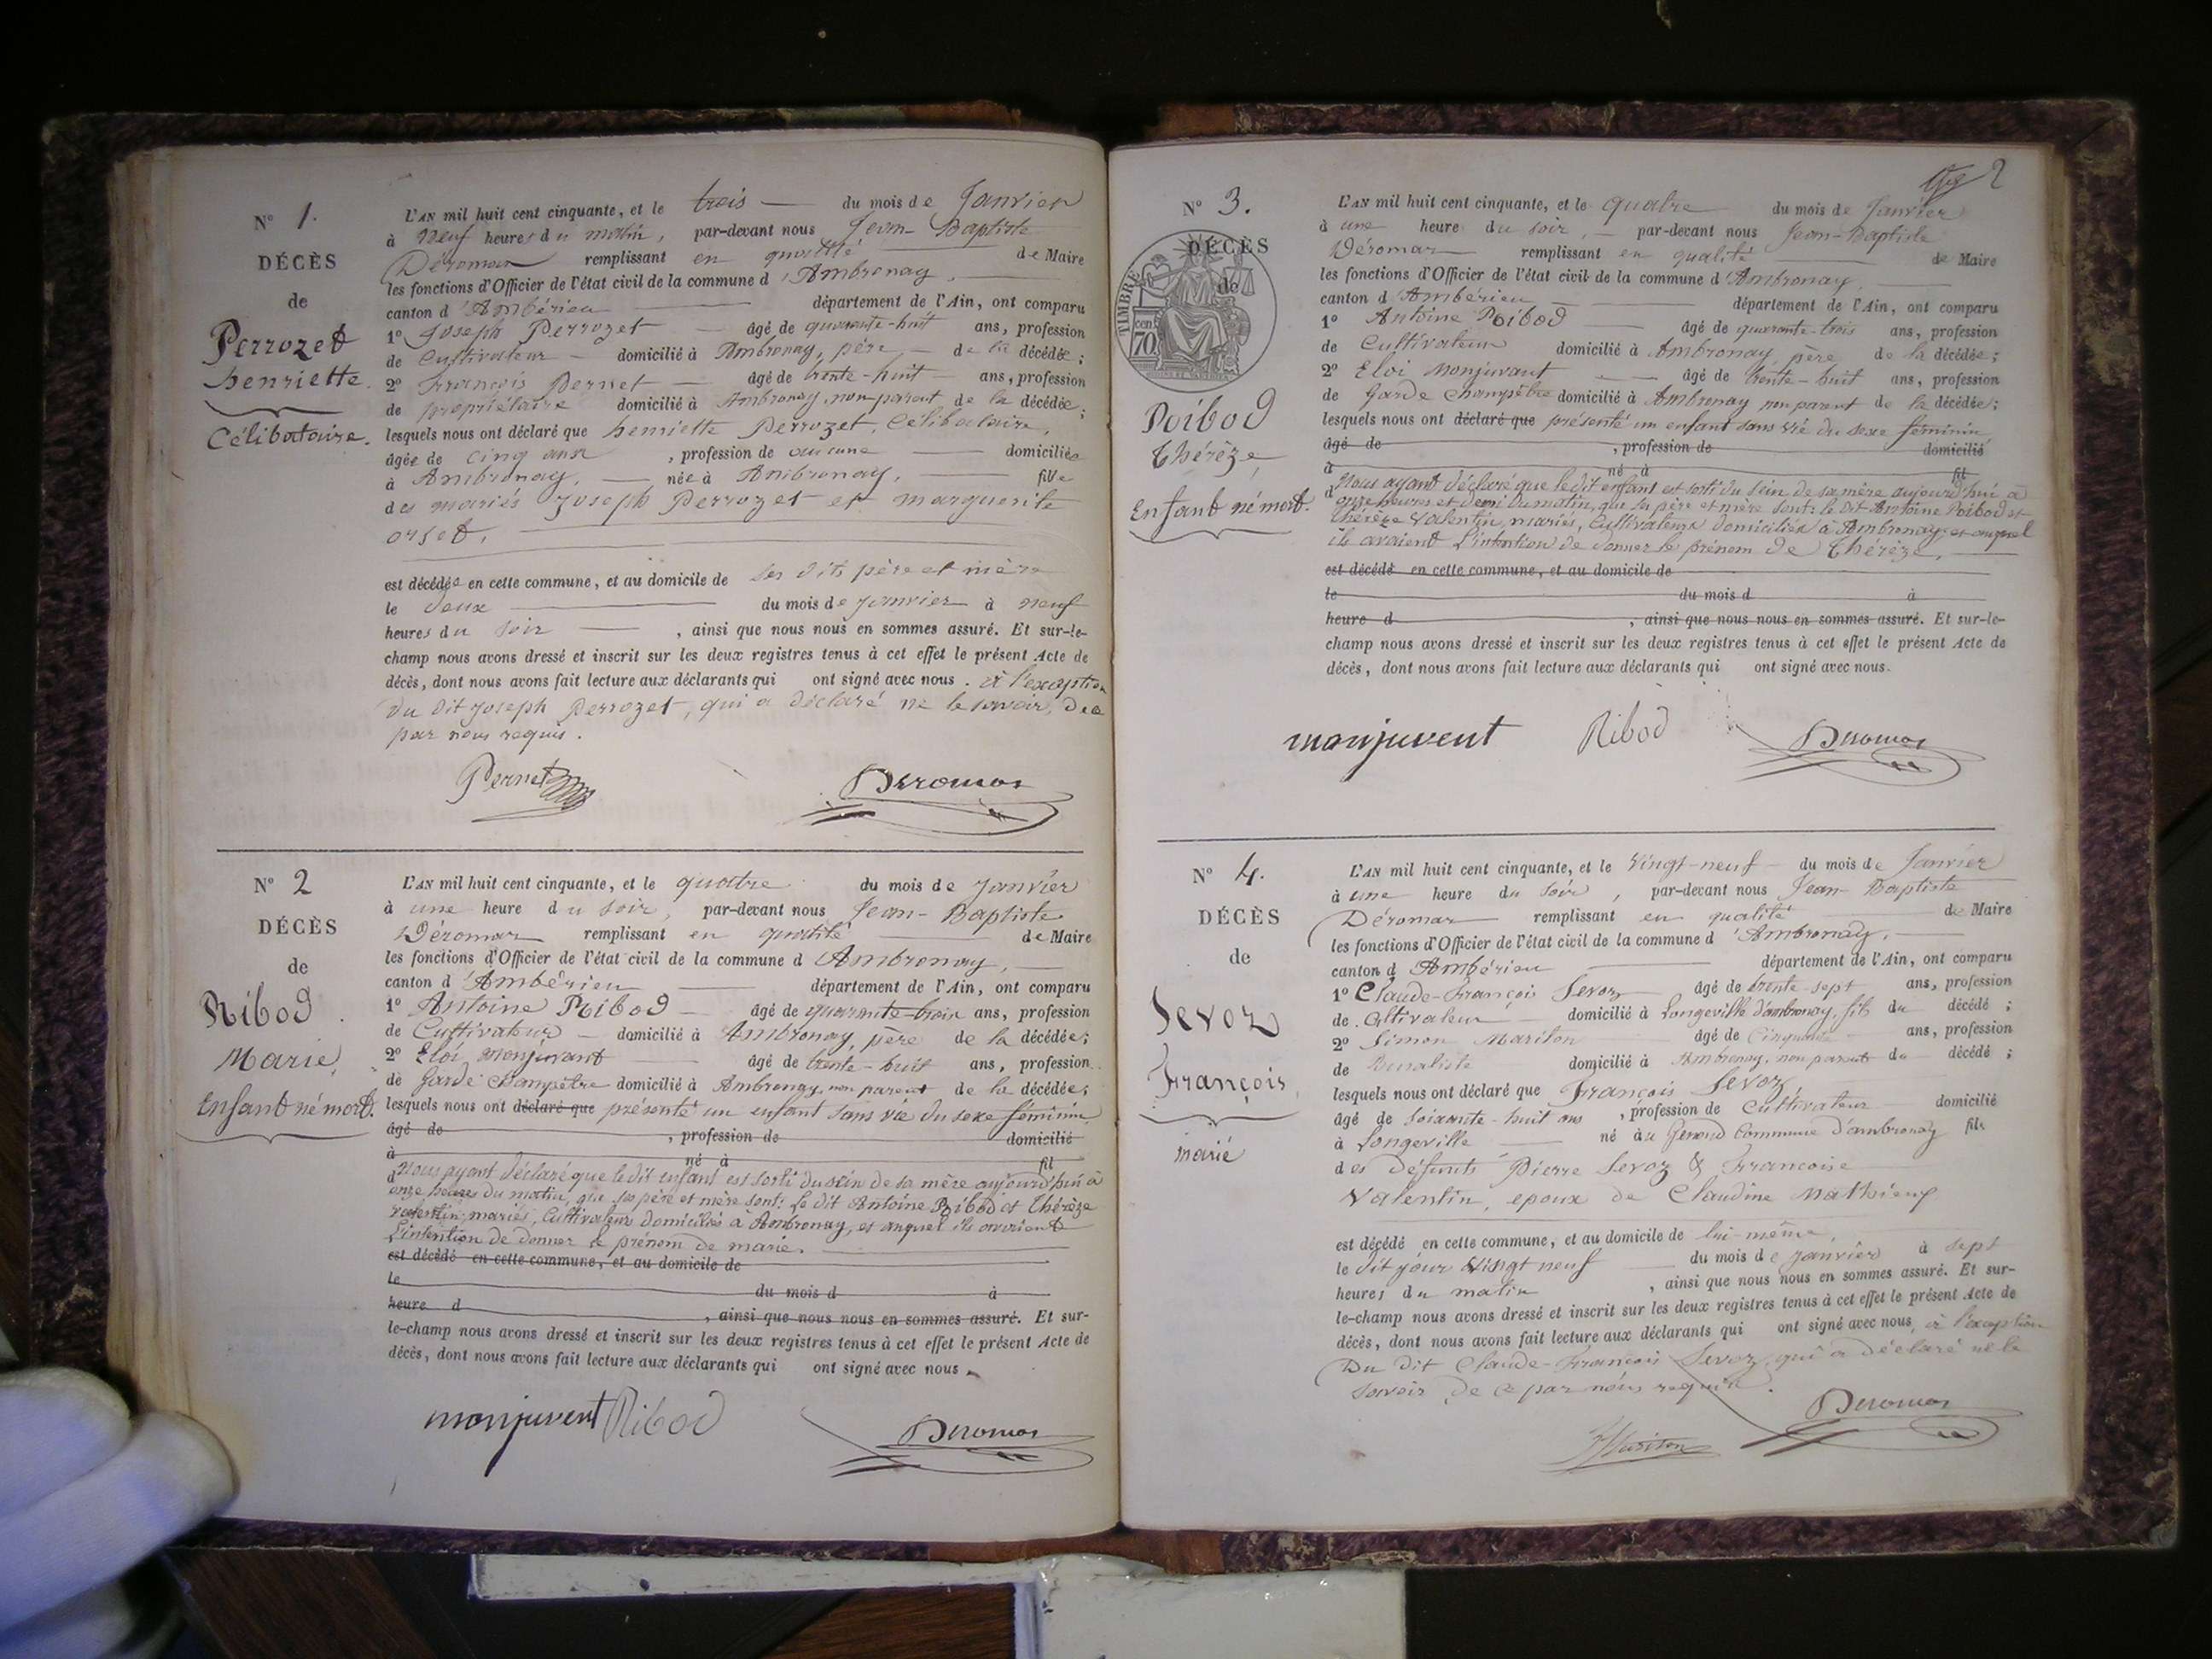 N° 1.
DÉCÈS
de
Perrozet
henriette.
Célibataire.
L'AN mil huit cent cinquante, et le trois du mois de Janvier
à neuf heures du matin, par-devant nous Jean-Baptiste
Déromas remplissant en qualité de Maire
les fonctions d'Officier de l'état civil de la commune d'Ambronay,
canton d'Ambérieu département de l'Ain, ont comparu
1° Joseph Perrozet âgé de quarante-huit ans, profession
de Cultivateur domicilié à Ambronay, père de la décédée;
2° François Pernet âgé de trente-huit ans, profession
de propriétaire domicilié à Ambronay, non parent de la décédée;
lesquels nous ont déclaré que henriette Perrozet, Célibataire,
âgée de cinq ans, profession de aucune domiciliée
à Ambronay, née à Ambronay, fille
des mariés Joseph Perrozet et marguerite
orset.
est décédée en cette commune, et au domicile de ses dits père et mère
le deux du mois de janvier à neuf
heures du soir, ainsi que nous nous en sommes assuré. Et sur-le-
champ nous avons dressé et inscrit sur les deux registres tenus à cet effet le présent Acte de
décès, dont nous avons fait lecture aux déclarants qui ont signé avec nous. à l'exception
du dit joseph Perrozet, qui a déclaré ne le savoir, de ce
par nous requis.
Pernet Deromas
N° 2
DÉCÈS
de
Ribod
Marie,
Enfant né mort.
L'AN mil huit cent cinquante, et le quatre du mois de janvier
à une heure du soir, par-devant nous Jean-Baptiste
Déromas remplissant en qualité de Maire
les fonctions d'Officier de l'état civil de la commune d Ambronay,
canton d'Ambérieu département de l'Ain, ont comparu
1° Antoine Ribod âgé de quarante-trois ans, profession
de Cultivateur domicilié à Ambronay, père de la décédée;
2° Eloi monjuvant âgé de trente-huit ans, profession
de Garde champêtre domicilié à Ambronay, non parent de la décédée;
lesquels nous ont déclaré que présenté un enfant sans vie du sexe féminin
âgé de , profession de domicilié
à né à fil
d Nous ayant déclaré que le dit enfant est sorti du sein de sa mère aujourd'hui à
onze heures du matin, que ses père et mère sont: Le dit Antoine Ribod et Thérèze
valentin, mariés, Cultivateurs domiciliés à Ambronay, et auquel ils avaient
L'intention de donner le prénom de marie.
est décédé en cette commune, et au domicile de
le du mois d à
heure d , ainsi que nous nous en sommes assuré. Et sur-
le-champ nous avons dressé et inscrit sur les deux registres tenus à cet effet le présent Acte de
décès, dont nous avons fait lecture aux déclarants qui ont signé avec nous.
monjuvent Ribod Deromas
2
N° 3.
DÉCÈS
de
TIMBRE
cen
70
Roibod
Thérèze,
Enfant né mort.
L'AN mil huit cent cinquante, et le quatre du mois de Janvier
à une heure du soir, par-devant nous Jean-Baptiste
Déromas remplissant en qualité de Maire
les fonctions d'Officier de l'état civil de la commune d'Ambronay,
canton d'Ambérieu département de l'Ain, ont comparu
1° Antoine Roibod âgé de quarante-trois ans, profession
de Cultivateur domicilié à Ambronay, père de la décédée;
2° Eloi monjuvant âgé de trente-huit ans, profession
de Garde champêtre domicilié à Ambronay non parent de la décédée;
lesquels nous ont déclaré que présenté un enfant sans vie du sexe féminin
âgé de , profession de domicilié
à né à fil
d Nous ayant déclaré que le dit enfant est sorti du sein de sa mère aujourd'hui à
onze heures et demi du matin, que ses père et mère sont: le dit Antoine Roibod et
Thérèze Valentin, mariés, Cultivateurs domiciliés à Ambronay; et auquel
ils avaient L'intention de donner le prénom de Thérèze.
est décédé en cette commune, et au domicile de
le du mois d à
heure d , ainsi que nous nous en sommes assuré. Et sur-le-
champ nous avons dressé et inscrit sur les deux registres tenus à cet effet le présent Acte de
décès, dont nous avons fait lecture aux déclarants qui ont signé avec nous.
monjuvent Ribod Deromas
N° 4.
DÉCÈS
de
Sevoz
François,
marié
L'AN mil huit cent cinquante, et le Vingt-neuf du mois de Janvier
à une heure du soir, par-devant nous Jean-Baptiste
Déromas remplissant en qualité de Maire
les fonctions d'Officier de l'état civil de la commune d'Ambronay,
canton d'Ambérieu département de l'Ain, ont comparu
1° Claude-François Sevoz âgé de trente-sept ans, profession
de Cultivateur domicilié à Longeville d'ambronay, fils du décédé;
2° Simon Mariton âgé de Cinquante ans, profession
de Buraliste domicilié à Ambronay, non parent du décédé;
lesquels nous ont déclaré que François Sevoz,
âgé de soixante-huit ans, profession de Cultivateur domicilié
à Longeville né au Genoud Commune d'ambronay fils
des défunts Pierre Sevoz & Francoise
Valentin, epoux de Claudine Mathieux
est décédé en cette commune, et au domicile de lui-même,
le dit jour Vingt neuf du mois de janvier à sept
heures du matin, ainsi que nous nous en sommes assuré. Et sur-
le-champ nous avons dressé et inscrit sur les deux registres tenus à cet effet le présent Acte de
décès, dont nous avons fait lecture aux déclarants qui ont signé avec nous, à l'exception
Du dit Claude-François Sevoz, qui a déclaré ne le
savoir de ce par nous requis.
Mariton Deromas